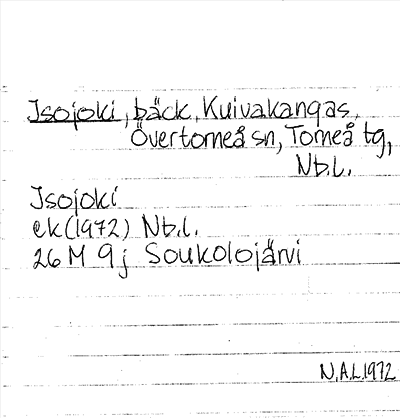 Isojoki, bäck, Kuivakangas,
Övertorneå sn, Torneå tg,
Nb.l.
Isojoki
ek (1972) Nb.l.
26 M 9 j Soukolojärvi
N.A.L. 1972